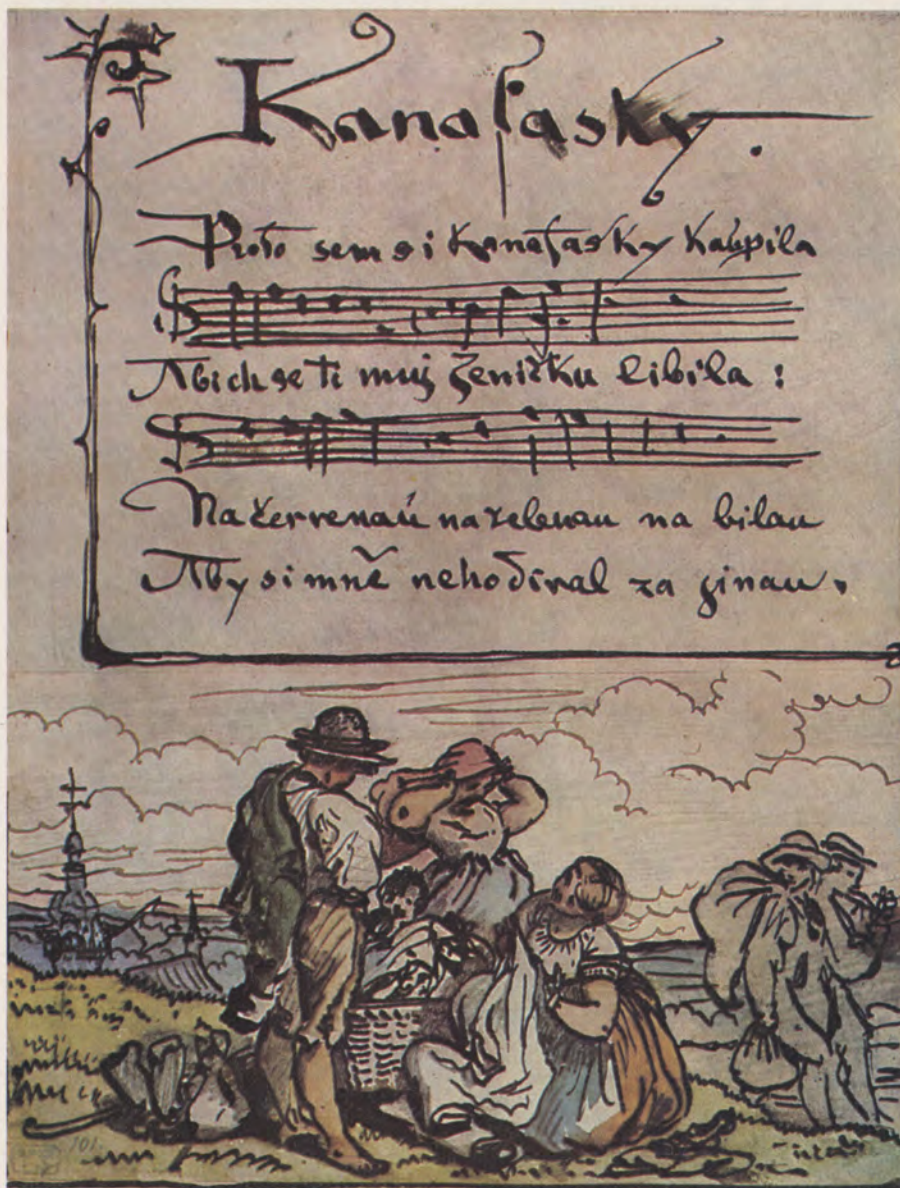 Kanafasky.
Proto sem si Kanafasky Kaupila
Abich se ti muj ženičku libila :
Na červenaú na zelenau na bilau
Aby si mně nehodíval za ginau.
101